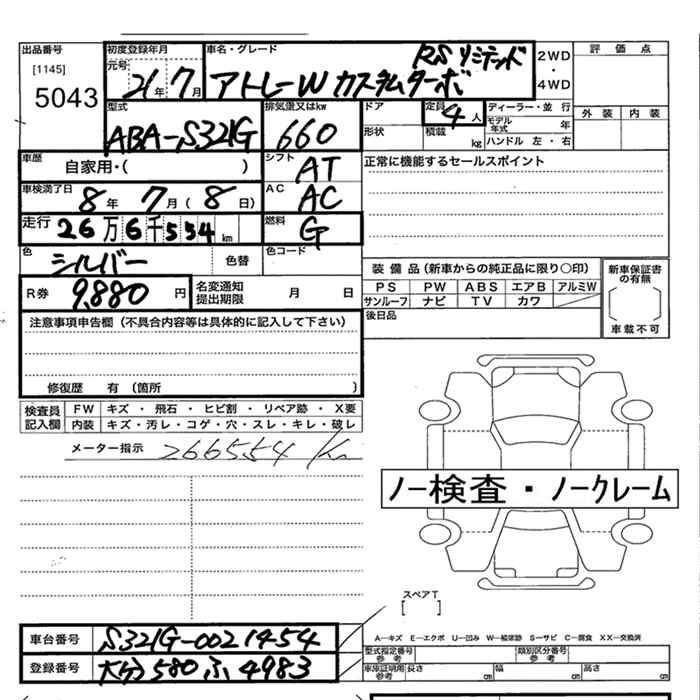 出品番号 初度登録年月 車名・グレード RSリミテッド 2WD・4WD 評価点
[1145] 元号 21年 7月 アトレーW カスタムターボ
5043 型式 排気量又はkw ドア 定員 4人 ディーラー・並行 外装 内装
ABA-S321G 660 形状 積載 kg モデル年式 年
ハンドル 左・右
車歴 自家用・( ) シフト AT 正常に機能するセールスポイント
車検満了日 8年 7月 (8日) AC AC
走行 26万6千554km 燃料 G
色 シルバー 色替 色コード
装備品(新車からの純正品に限り○印) 新車保証書の有無
R券 9,880円 名変通知提出期限 月 日 PS PW ABS エアB アルミW
サンルーフ ナビ TV カワ
注意事項申告欄(不具合内容等は具体的に記入して下さい) 後日品 車載不可
修復歴 有 (箇所 )
検査員記入欄 FW キズ・飛石・ヒビ割・リペア跡・X要
内装 キズ・汚レ・コゲ・穴・スレ・キレ・破レ
メーター指示 266554 Km
ノー検査・ノークレーム
スペアT
[ ]
車台番号 S321G-0021454 A―キズ E―エクボ U―凹み W―補修跡 S―サビ C―腐食 XX―交換済
型式指定番号 参考 類別区分番号 参考
登録番号 大分580ふ4983 車庫証明用参考 長さ cm 幅 cm 高さ cm